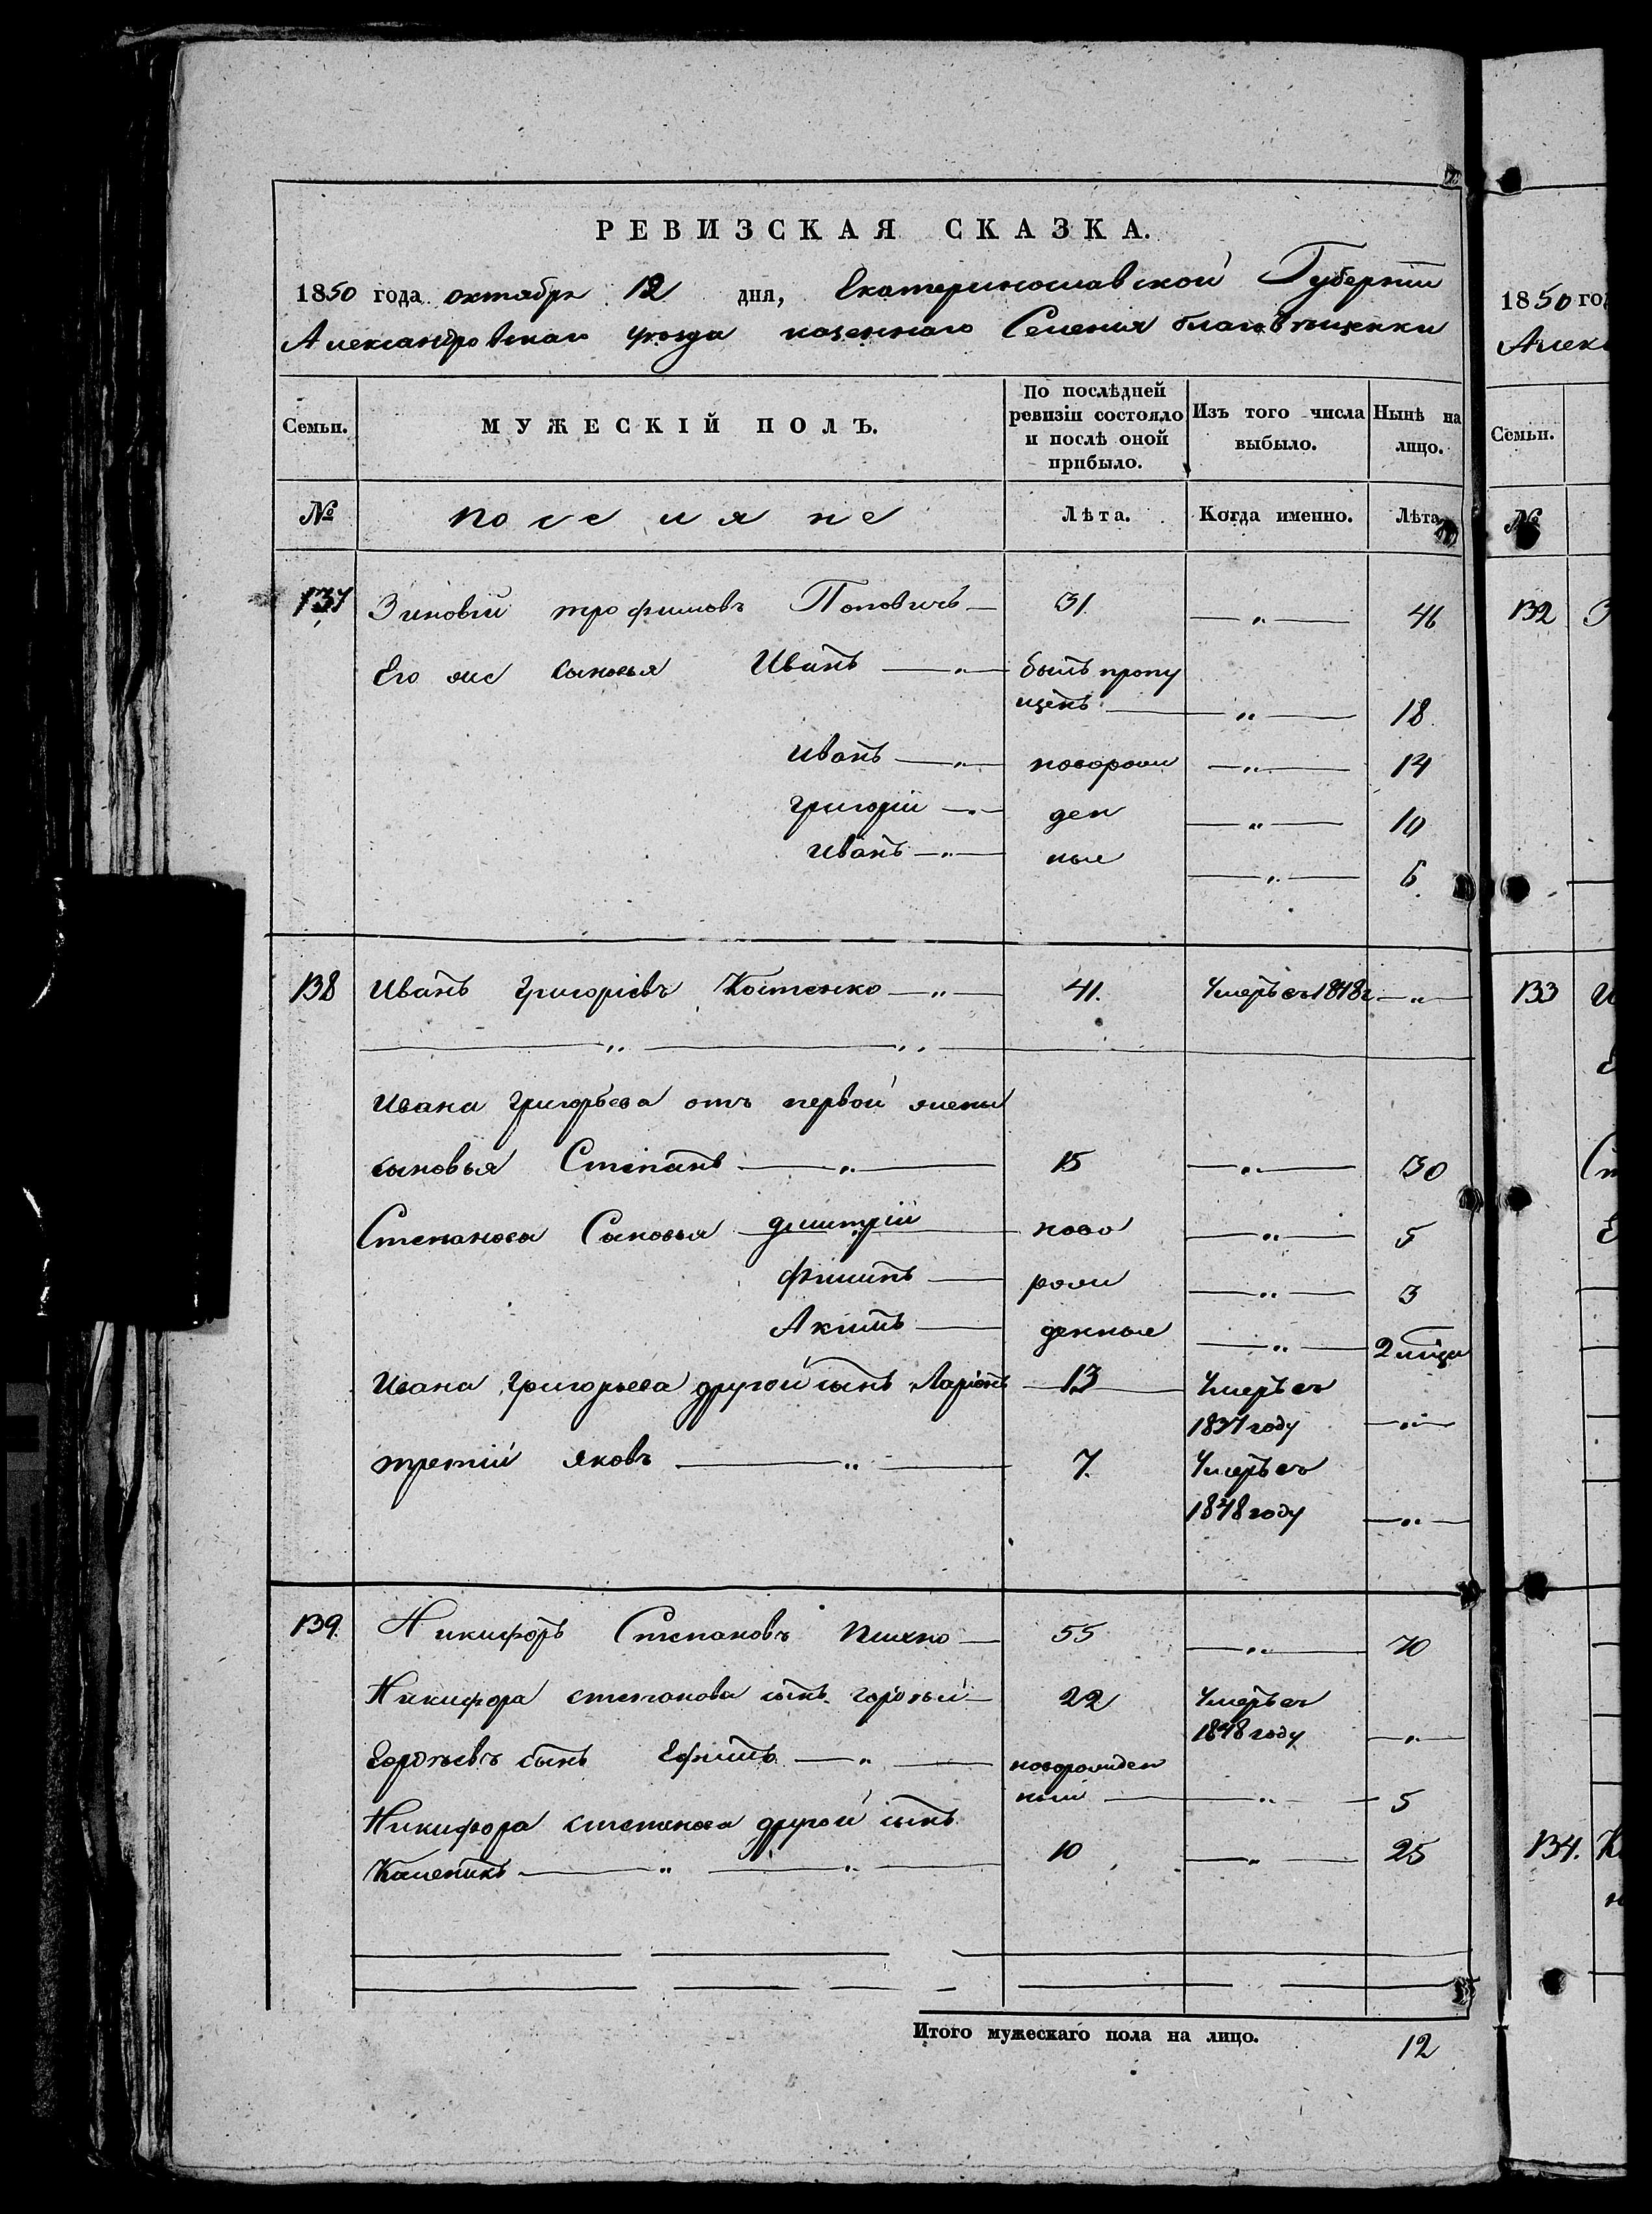 РЕВИЗСКАЯ СКАЗКА.
1850 года октября 12 дня, Екатеринославской Губерніи
Александровскаго уѣзда казеннаго Селенія благовѣщенки
Семьи.
МУЖЕСКІЙ ПОЛЪ.
По послѣдней ревизіи состояло и послѣ оной прибыло.
Изъ того числа выбыло.
Нынѣ на лицо.
№ поселяне Лѣта. Когда именно. Лѣта
137 Зиновій трофимовъ Поповичъ — 31. — „ — 46
Его же сыновья Иванъ — „ — былъ пропу
щенъ — „ — 18.
Иванъ — „ — новорож — „ — 14
Григорій — „ — ден — „ — 10
Иванъ — „ — ные — „ — 6.
138 Иванъ Григоріевъ Костенко — „ — 41. Умеръ въ 1848г — „ —
— „ — „ —
Ивана Григорьева отъ первой жены
сыновья Степанъ — „ — 15 — „ — 30
Степанова Сыновья дмитрій ново — „ — 5
Филипъ — рож — „ — 3
Акимъ — денные — „ — 2 мѣца
Ивана Григорьева другой сынъ Ларіонъ — 13 — Умеръ въ
1837 году — „ —
третій яковъ — „ — 7. Умеръ въ
1848 году — „ —
139. Никифоръ Степановъ — 55 — „ — 70
Никифора степанова сынъ — 22 Умеръ въ
1848 году — „ —
сынъ Ефимъ — „ — новорожден
ный — „ — 5
Никифора степанова другой сынъ
Каленикъ — „ — „ — 10 — „ — 25
Итого мужескаго пола на лицо. 12
1850 год
Алек
Семьи.
№
132 З
133 И
Е
Ст
Е
134. К